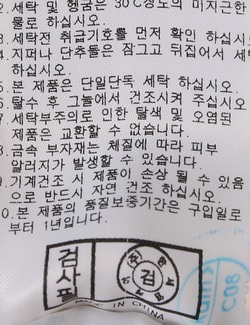 2. 세탁 및 헹굼은 30℃정도의 미지근한
물로 하십시오.
3. 세탁전 취급기호를 먼저 확인 하십시오
4. 지퍼나 단추들은 잠그고 뒤집어서 세탁
하십시오.
5. 본 제품은 단일단독 세탁 하십시오.
6. 탈수 후 그늘에서 건조시켜 주십시오
7. 세탁부주의로 인한 탈색 및 오염된
제품은 교환할 수 없습니다.
8. 금속 부자재는 체질에 따라 피부
알러지가 발생할 수 있습니다.
9. 기계건조 시 제품이 손상 될 수 있음
으로 반드시 자연 건조 하십시오.
0. 본 제품의 품질보증기간은 구입일로
부터 1년입니다.
검사필
검
MADE IN CHINA
C08